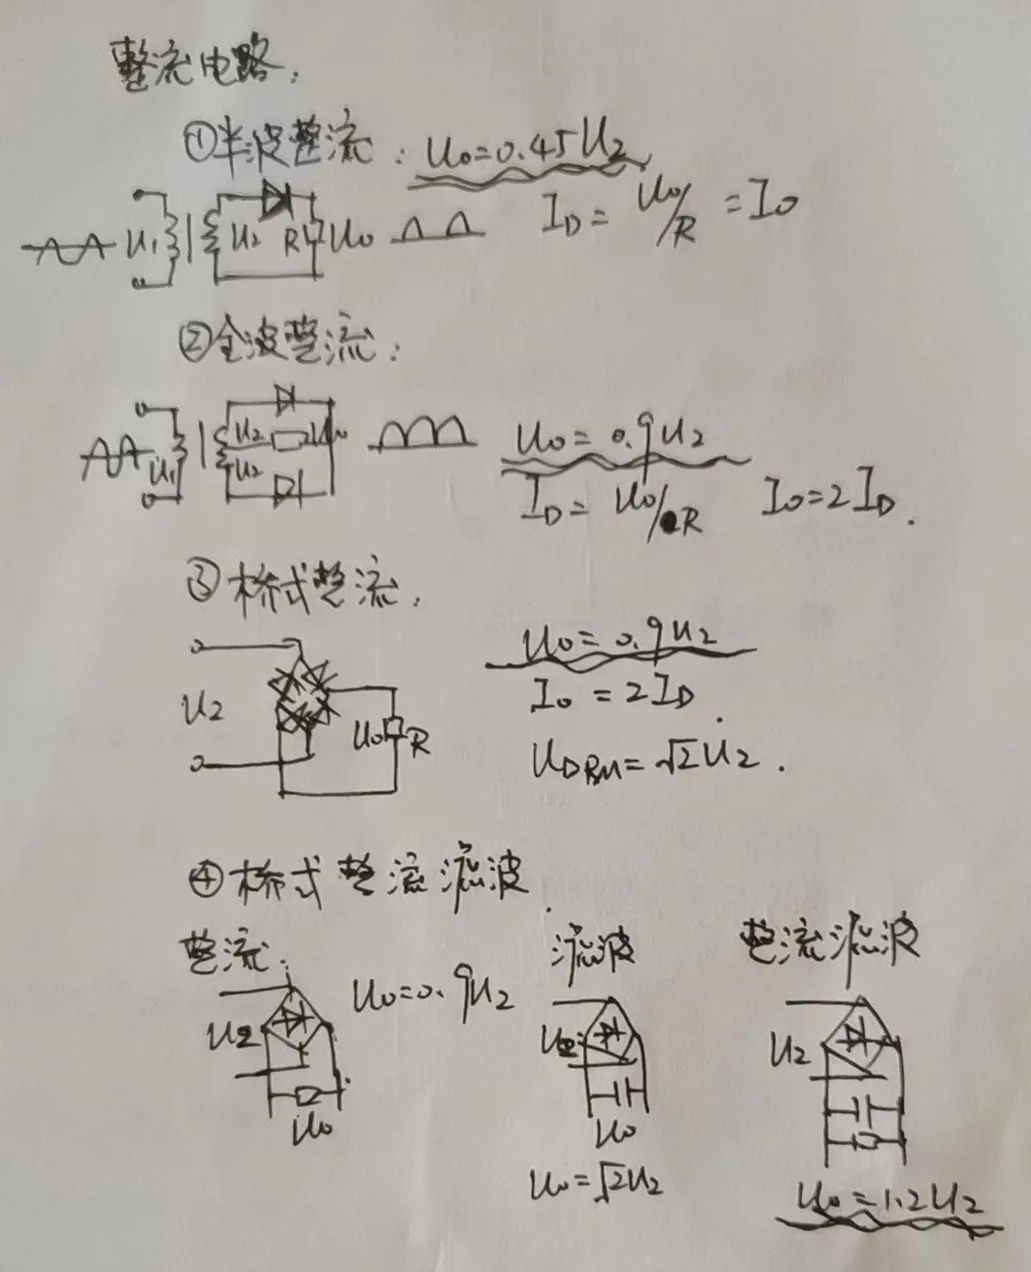 整流电路:
①半波整流: U₀=0.45U₂
U₁ U₂ R U₀ I_D = U₀/R = I₀
②全波整流:
U₁ U₂ U₂ U₀ U₀ = 0.9U₂
I_D = U₀/R I₀=2I_D.
③桥式整流.
U₀ = 0.9U₂
U₂ U₀ R I₀ = 2I_D.
U_DRM=√2U₂.
④桥式整流滤波.
整流: 滤波 整流滤波
U₂ U₀=0.9U₂ U₂ U₂
U₀ U₀
U₀=√2U₂ U₀=1.2U₂